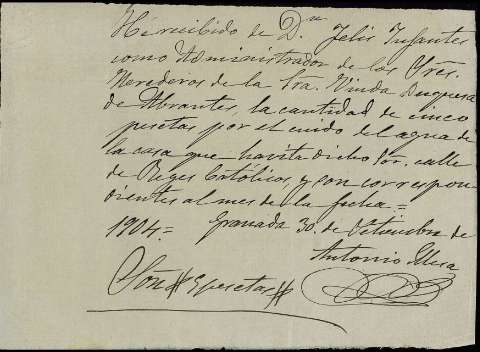 He recibido de Dn Felix Infantes
como Administrador de los Sres.
Herederos de la Sra. Viuda Duquesa
de Abrantes, la cantidad de cinco
pesetas por el cuido del agua de
la casa que havita dicho Sor. calle
de Reyes Catolicos, y son correspon
dientes al mes de la fecha =
Granada 30. de Setiembre de
1904. =
Antonio
Son # 5 pesetas #